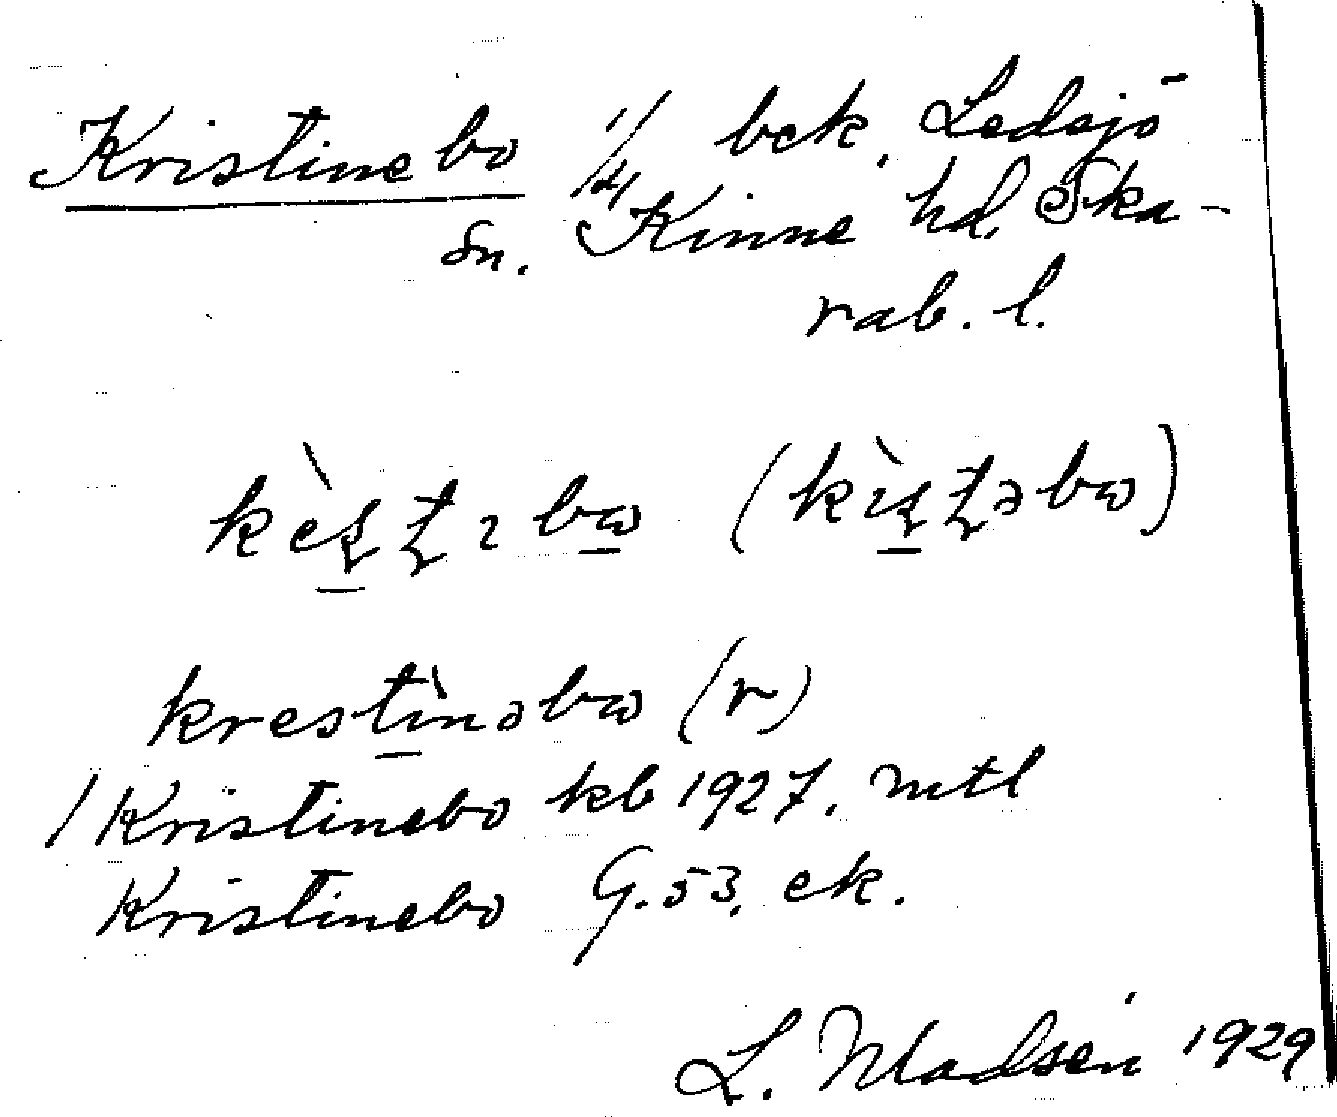 Kristinebo 1/4 bek. Ledsjö
sn. Kinne hd. Ska-
rab. l.
kèʂʈɪbɷ (kɪ̀ʂʈəbɷ)
krestìnəbɷ (r)
/ Kristinebo kb 1927. mtl
Kristinebo G. 53. ek.
L. Madsén 1929